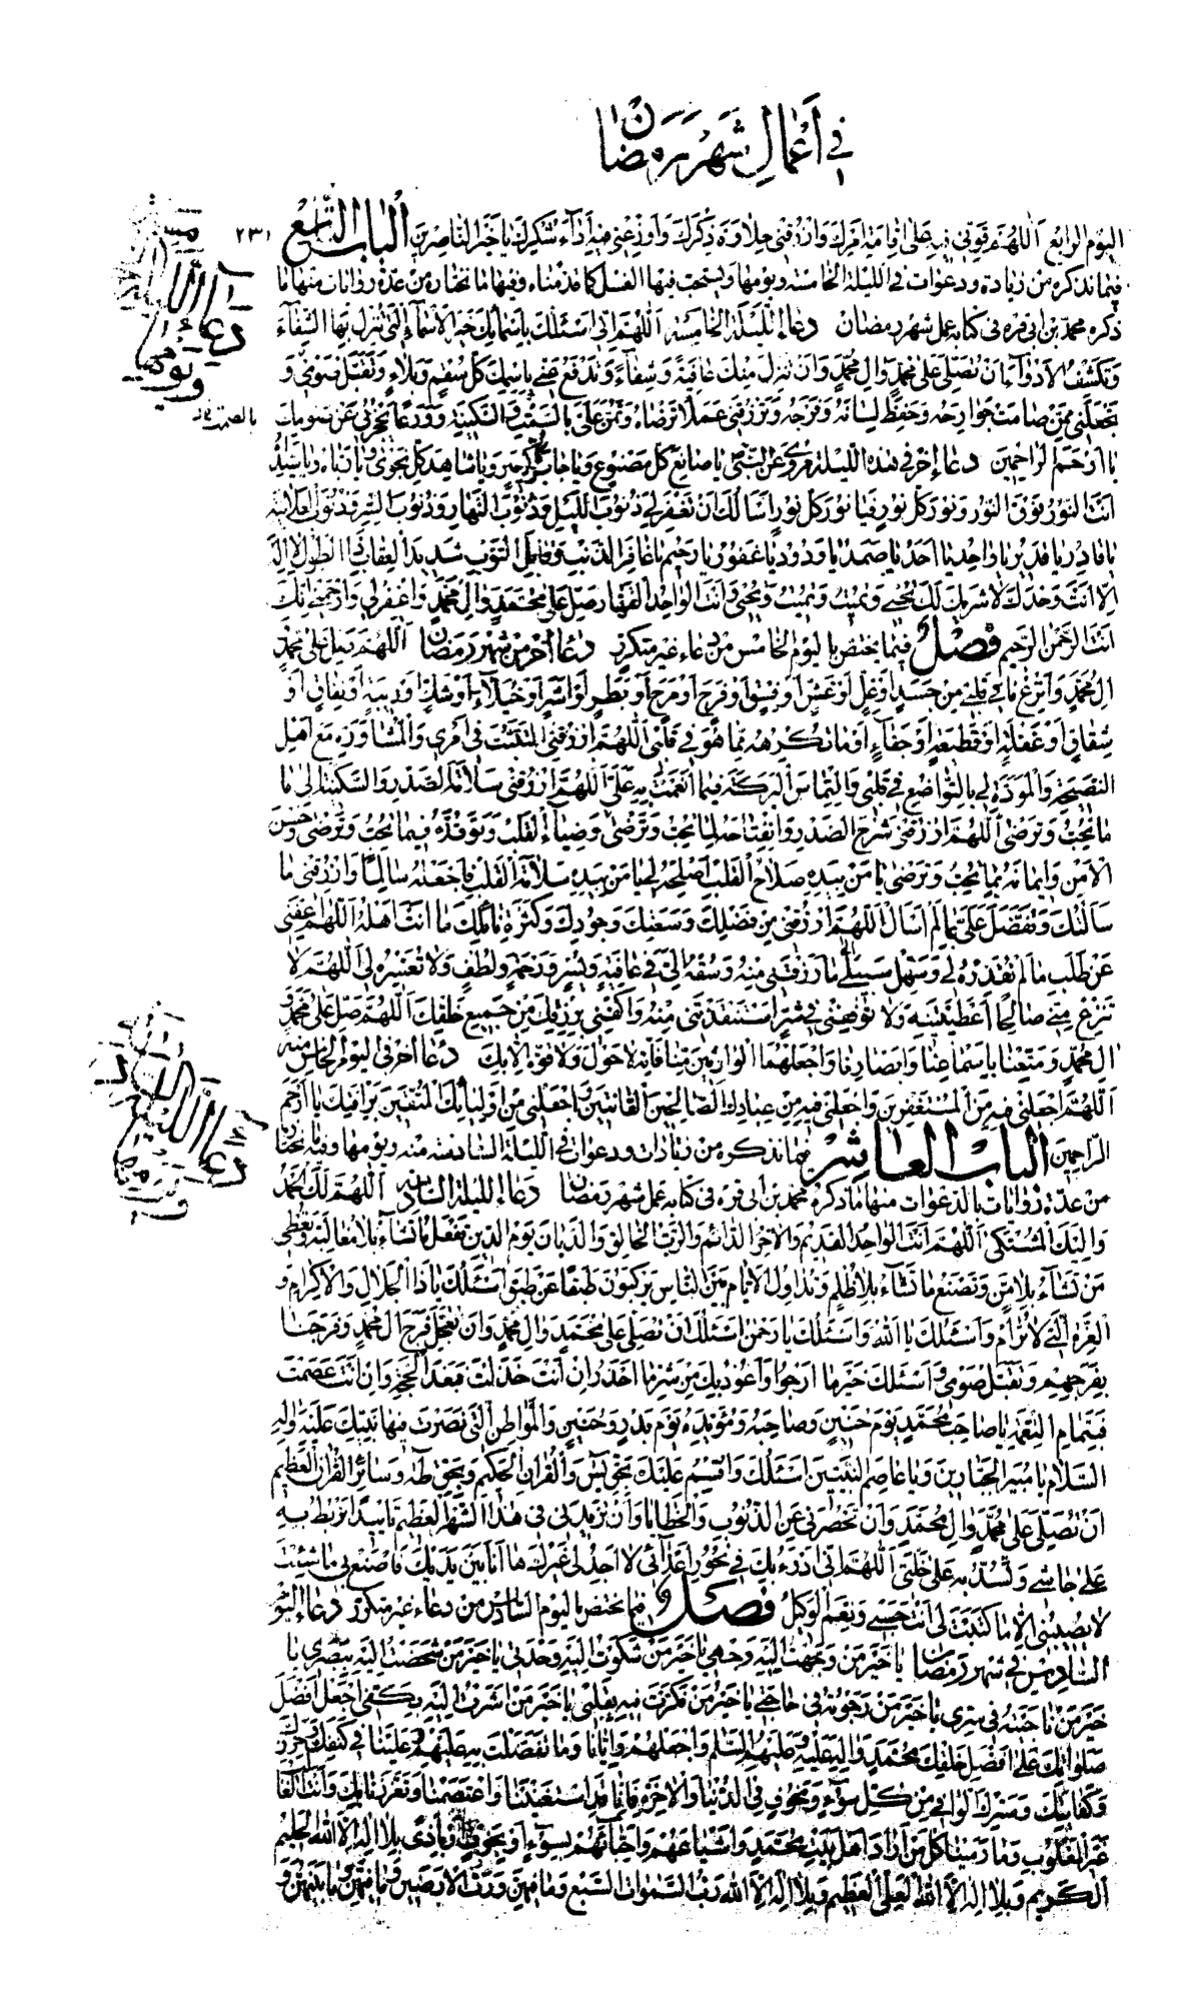 في أعمال شهر رمضان
٢٣١
اليوم الرابع اللهم قوني فيه على إقامة أمرك وارزقني حلاوة ذكرك وأوزعني فيه أداء شكرك يا خير الناصرين الباب التاسع
فيما نذكره من زيادة ودعوات في الليلة الخامسة ويومها ويستحب فيها الغسل كما قدمناه وفيها ما نختاره من عدة روايات منها ما
ذكره محمد بن أبي قرة في كتابه عمل شهر رمضان دعاء الليلة الخامسة اللهم إني أسئلك بأسمائك خير الأسماء التي تنزل بها الشفاء
وتكشف الأدواء أن تصلي على محمد وآل محمد وأن تنزل منك عافية وشفاء وتدفع عني باسمك كل سقم وبلاء وتقبل صومي و
تجعلني ممن صامت جوارحه وحفظ لسانه وفرجه وترزقني عملا ترضاه وتمن علي بالسمت والسكينة وورعا يحجزني عن
يا أرحم الراحمين دعاء آخر في هذه الليلة مروي عن النبي يا صانع كل مصنوع ويا جابر كل كسير ويا شاهد كل نجوى يا رباه ويا سيداه
أنت النور فوق النور ونور كل نور فيا نور كل نور أسألك أن تغفر لي ذنوب الليل وذنوب النهار وذنوب السر وذنوب العلانية
يا قادر يا قدير يا واحد يا أحد يا صمد يا ودود يا غفور يا رحيم يا غافر الذنب وقابل التوب شديد العقاب ذا الطول لا إله
إلا أنت وحدك لا شريك لك تحيي وتميت وتميت وتحيي وأنت الواحد القهار صل على محمد وآل محمد واغفر لي وارحمني إنك
أنت الرحمن الرحيم فصل فيما يختص باليوم الخامس من دعاء غير متكرر دعاء آخر من شهر رمضان اللهم صل على محمد
آل محمد وانزع ما في قلبي من حسد أو غل أو غش أو فسق أو فرح أو مرح أو بطر أو أشر أو خيلاء أو شك أو ريبة أو نفاق أو
شقاق أو غفلة أو قطيعة أو جفاء أو ما تكرهه مما هو في قلبي اللهم ارزقني التثبت في أمري والمشاورة مع أهل
النصيحة والمودة لي بالتواضع في قلبي والتماس البركة فيما أنعمت به علي اللهم ارزقني سلامة الصدر والسكينة إلى ما
ما تحب وترضى اللهم ارزقني شرح الصدر وانفتاحه لما تحب وترضى وضياء القلب وتوقده فيما تحب وترضى وحسن
الأمن وإيمانه بما تحب وترضى يا من بيده صلاح القلب أصلحه لي يا من بيده سلامة القلب فاجعله سالما وارزقني ما
سألتك وتفضل علي بما لم أسأل اللهم ارزقني من فضلك وسعتك وجودك وكثرة نائلك ما أنت أهله اللهم اعفني
عن طلب ما لم تقدره لي وسهل سبيلي ما رزقتني منه وسقه إلي في عافية ويسر ورحمة ولطف ولا تعسره لي اللهم لا
تنزع مني صالحا أعطيتنيه ولا توقعني في شر استنقذتني منه واكفني برزقك من جميع خلقك اللهم صل على محمد و
آل محمد ومتعنا بأسماعنا وأبصارنا واجعلهما الوارثين منا فإنه لا حول ولا قوة إلا بك دعاء آخر في اليوم الخامس منه
اللهم اجعلني فيه من المستغفرين واجعلني فيه من عبادك الصالحين القانتين واجعلني من أوليائك المتقين برأفتك يا أرحم
الراحمين الباب العاشر فيما نذكره من زيادات ودعوات في الليلة السادسة منه ويومها وفيه ما نختاره
من عدة روايات بالدعوات منها ما ذكره محمد بن أبي قرة في كتابه عمل شهر رمضان دعاء الليلة السادسة اللهم لك الحمد
وإليك المشتكى اللهم أنت الواحد القديم والآخر الدائم والرب الخالق والديان يوم الدين تفعل ما تشاء بلا مغالبة وتعطي
من تشاء بلا من وتصنع ما تشاء بلا ظلم وتداول الأيام بين الناس يركبون طبقا عن طبق أسئلك يا ذا الجلال والإكرام و
العزة التي لا ترام وأسئلك يا الله وأسئلك يا رحمن أسئلك أن تصلي على محمد وآل محمد وأن تعجل فرج آل محمد وفرجنا
بفرجهم وتقبل صومي وأسئلك خير ما أرجو وأعوذ بك من شر ما أحذر إن أنت خذلت فبعد الحجة وإن أنت عصمت
فبتمام النعمة يا صاحب محمد يوم حنين وصاحبه ومؤيده يوم بدر وحنين والمواطن التي نصرت فيها نبيك عليه وآله
السلام يا مبير الجبارين ويا عاصم النبيين أسئلك وأقسم عليك بحق يس والقرآن الحكيم وبحق طه وسائر القرآن العظيم
أن تصلي على محمد وآل محمد وأن تحصرني عن الذنوب والخطايا وأن تزيدني في هذا الشهر العظيم تأييدا تربط به
على جاشي وتسد به على خلتي اللهم إني أدرء بك في نحور أعدائي لا أجد لي غيرك ها أنا بين يديك فاصنع بي ما شئت
لا يصيبني إلا ما كتبت لي أنت حسبي ونعم الوكيل فصل فيما يختص باليوم السادس من دعاء غير متكرر دعاء اليوم
السادس في شهر رمضان يا خير من وجهت إليه وجهي يا خير من شكوت إليه وحدتي يا خير من شخصت إليه ببصري يا
خير من ناجيته في سري يا خير من رجوته في حاجتي يا خير من فكرت فيه بقلبي يا خير من أشرت إليه بكفي اجعل أفضل
صلواتك على أفضل خلقك محمد وآله عليه وعليهم السلم واجعلهم وإيانا وما تفضلت به عليهم وعلينا في كنفك وحرزك
وكفايتك وسترك الواقي من كل سوء ومخوف في الدنيا والآخرة فإنا قد استعنتنا واعتصمنا وتعززنا بك وأنت الغالب
غير المغلوب ورمينا كل من أراد أهل بيت محمد وأشياعهم وأحباءهم بسوء أو بخوف أو بأذى بلا إله إلا الله الحليم
الكريم وبلا إله إلا الله العلي العظيم وبلا إله إلا الله رب السموات السبع وما فيهن ورب الأرضين وما فيهن وما بينهن و